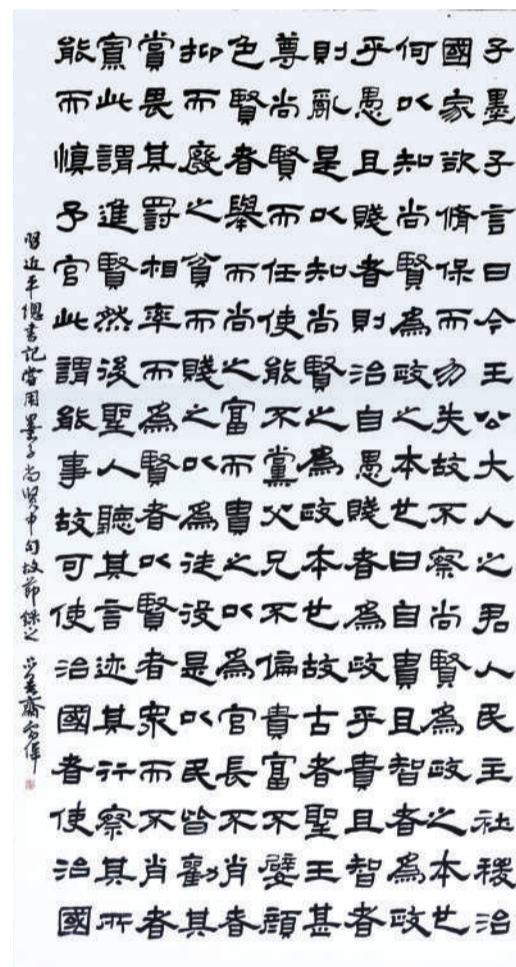 子墨子言曰今王公大人之君人民主社稷治
國家欲脩保而勿失故不察尚賢為政之本也
何以知尚賢為政之本也曰自貴且智者為政
乎愚且賤者則治自愚賤者為政乎貴且智者
則亂是以知尚賢之為政本也故古者聖王甚
尊尚賢而任使能不黨父兄不偏貴富不嬖顏
色賢者舉而尚之富而貴之以為官長不肖者
抑而廢之貧而賤之以為徒役是以民皆勸其
賞畏其罰相率而為賢者以賢者衆而不肖者
寡此謂進賢然後聖人聽其言迹其行察其所
能而慎予官此謂能事故可使治國者使治國
習近平總書記嘗用墨子尚贤中句故節錄之 齋